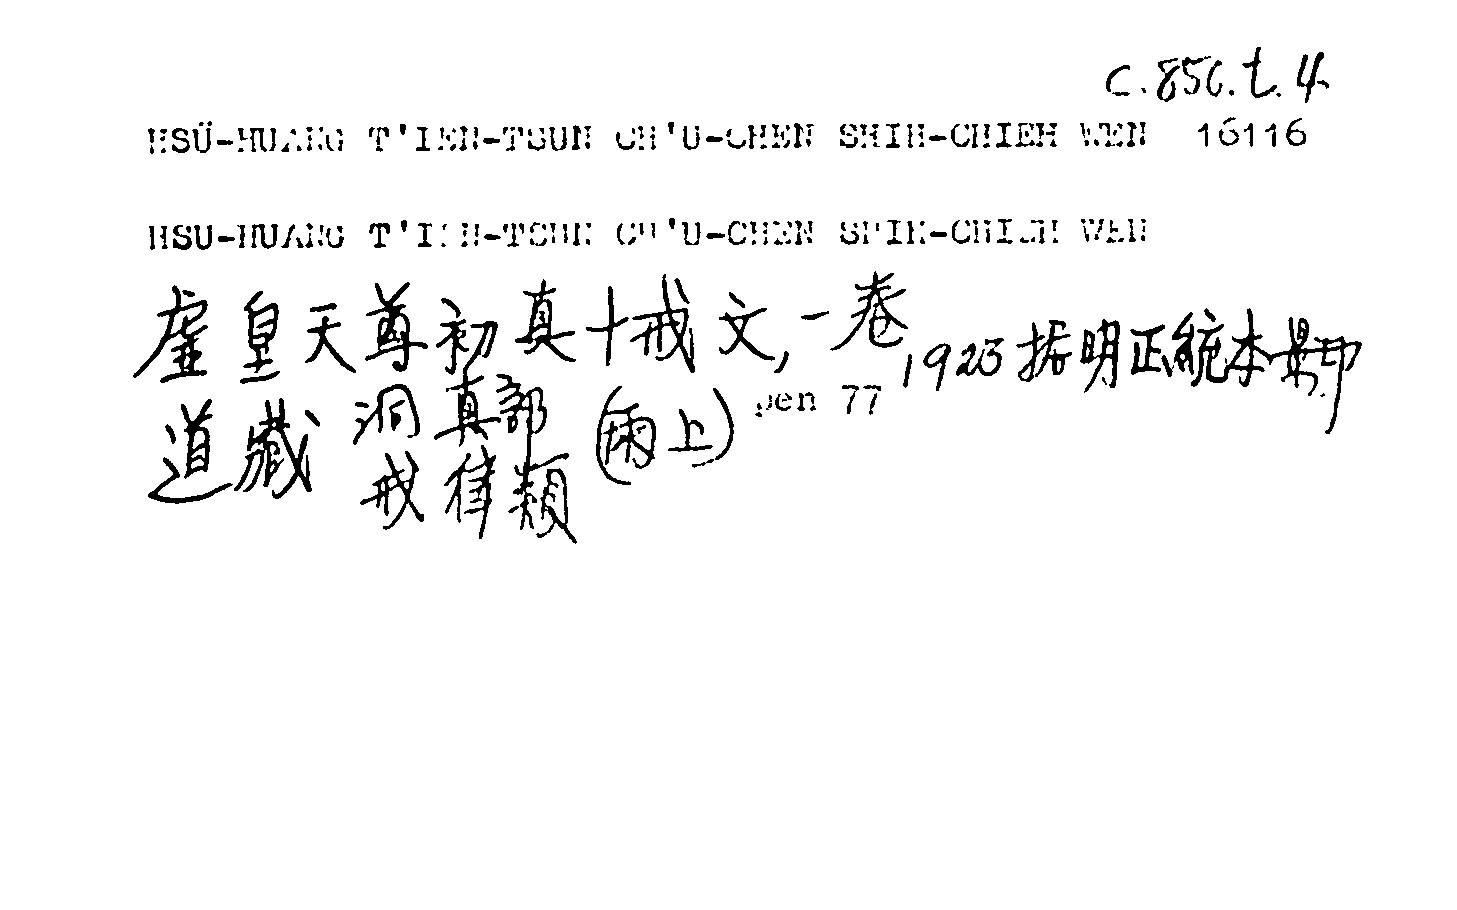 C.856.t.4.
HSÜ-HUANG T'IEN-TSUN CH'U-CHEN SHIH-CHIEH WEN 16116
HSU-HUANG T'IEN-TSUN CH'U-CHEN SHIH-CHIEH WEN
虛皇天尊初真十戒文, 一卷, 1923 据明正統本景印
道藏 洞真部 (雨上) pen 77
戒律類